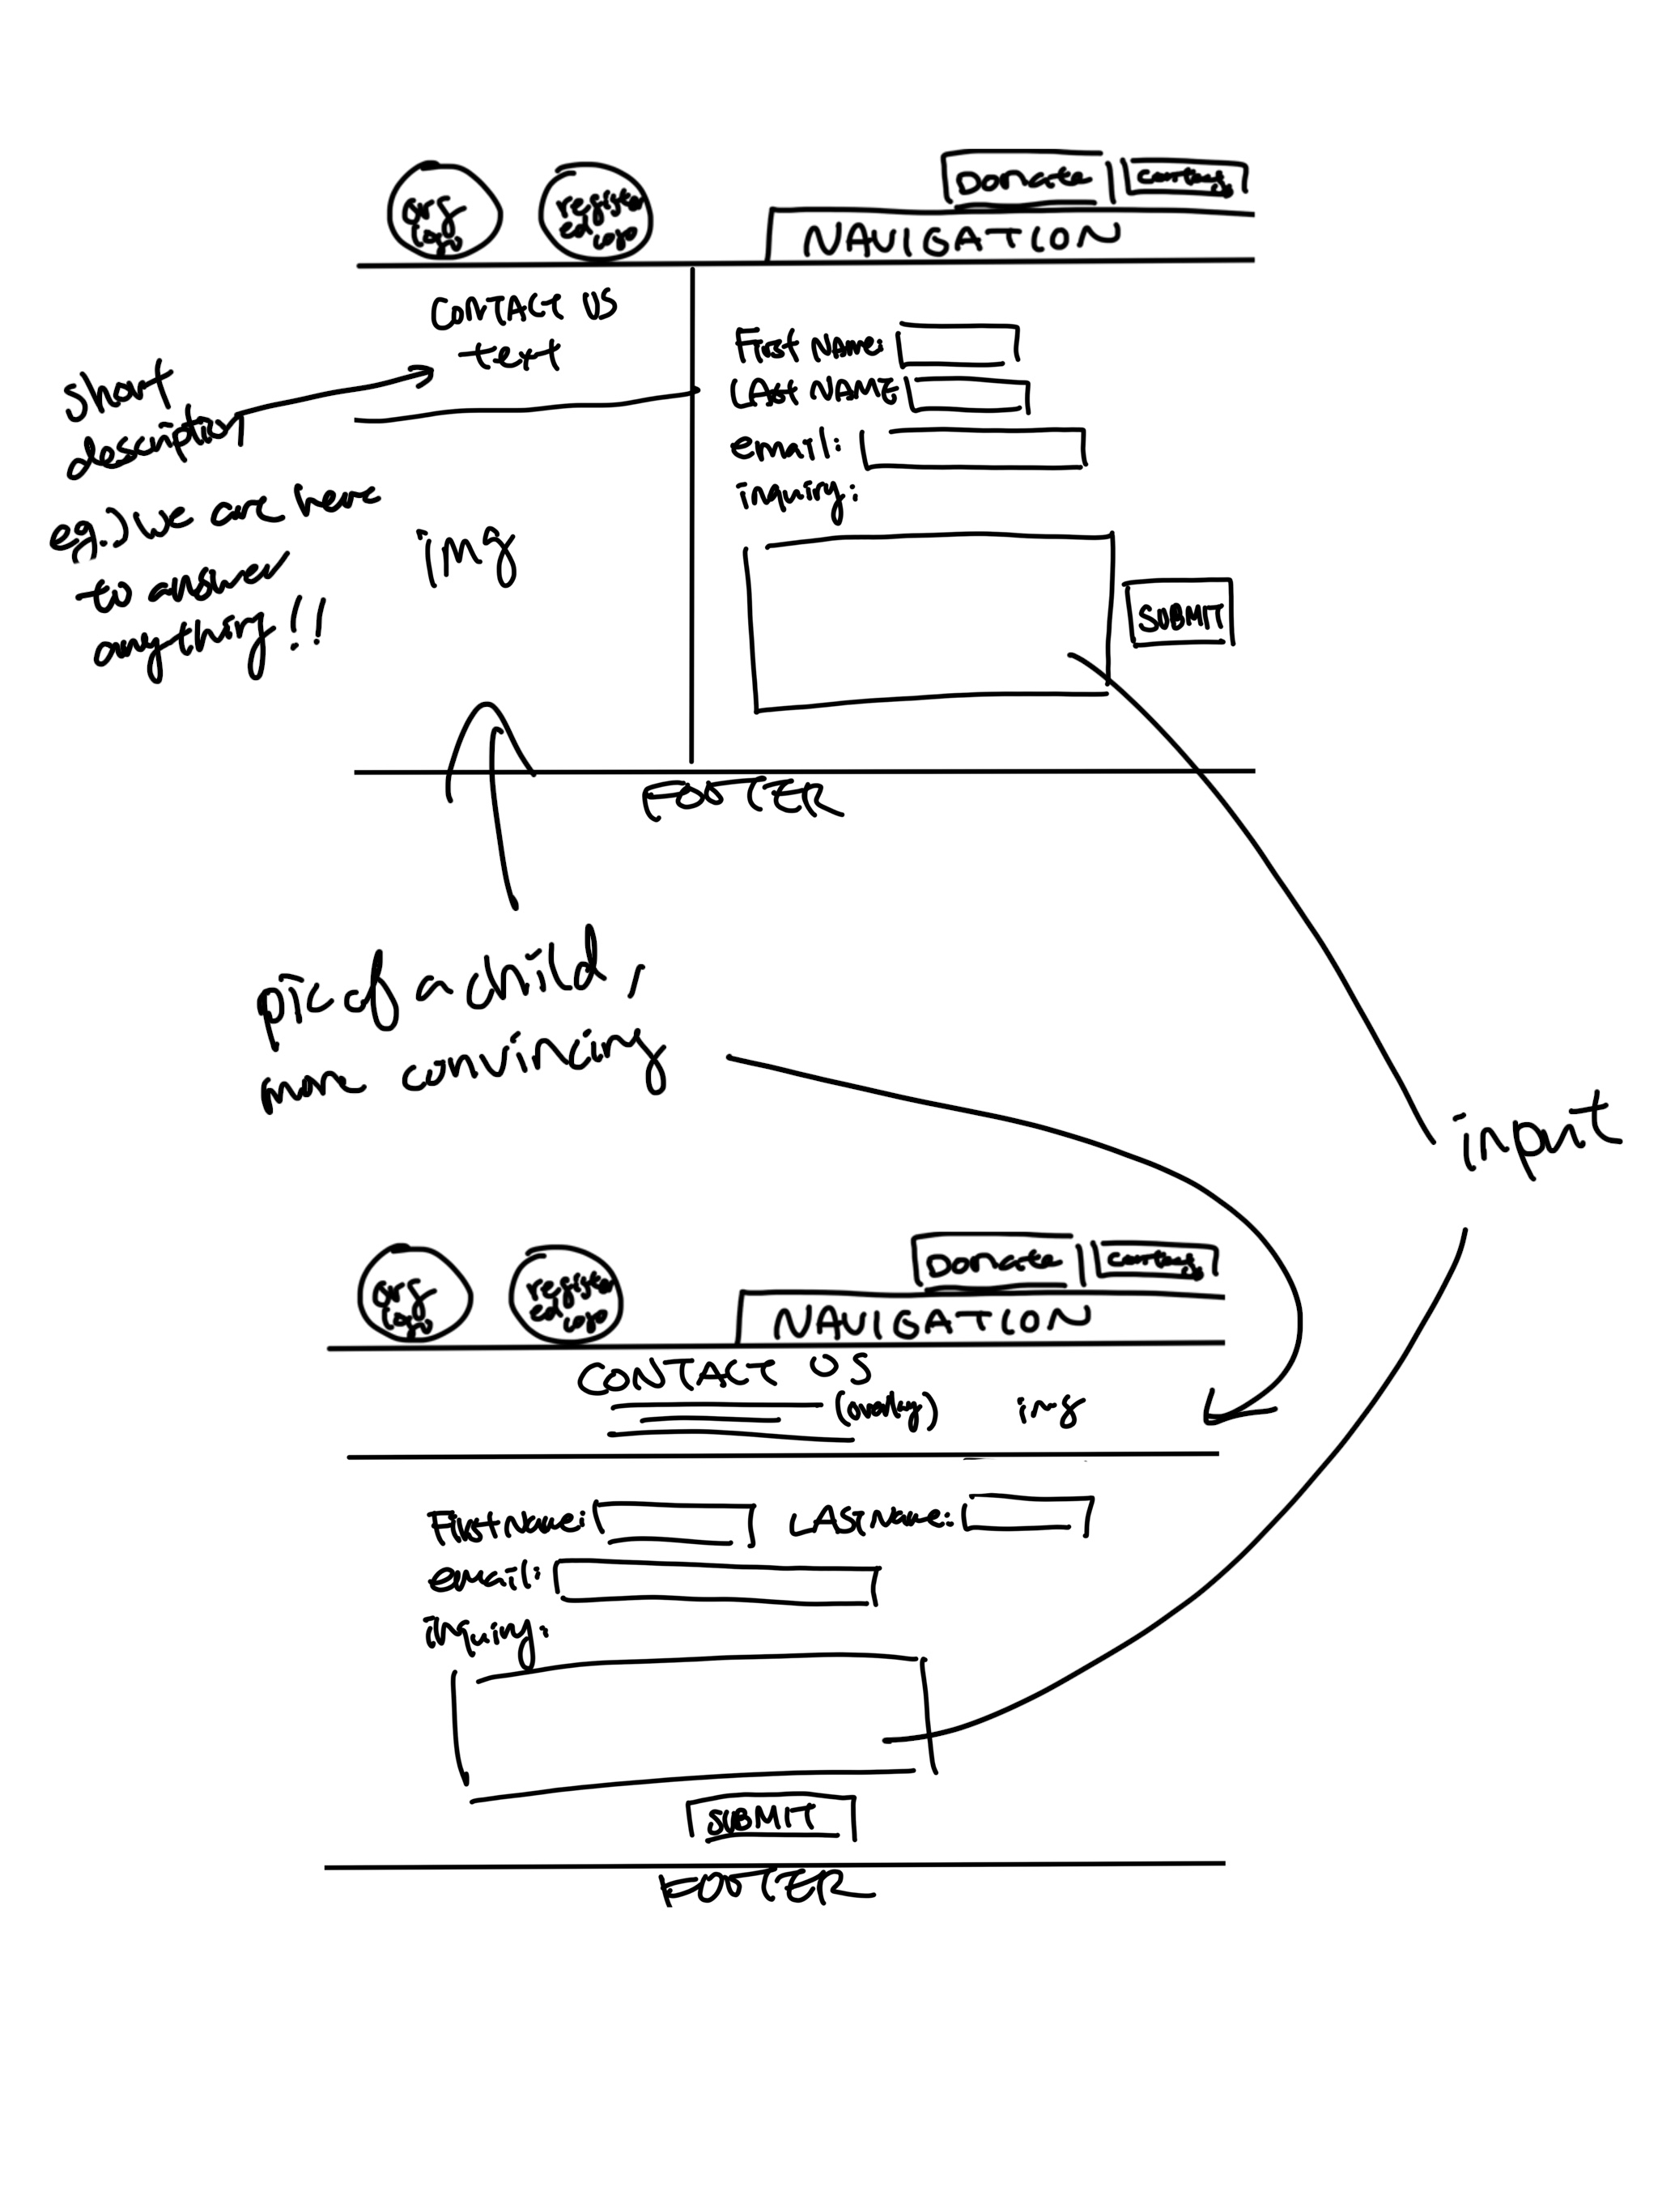 org
logo
register
ed logo
Donate
contact
NAVIGATION
CONTACT US
text
short
description
eg.) we are here
to answer
anything!!
img
First NAME:
LAST NAME:
email:
inquiry:
SUBMIT
FOOTER
pic of a child,
more convincing
input
org
logo
register
ed logo
Donate
NAVIGATION
CONTACT US
(overlay) img
First Name: LAST Name:
email:
inquiry:
SUBMIT
FOOTER